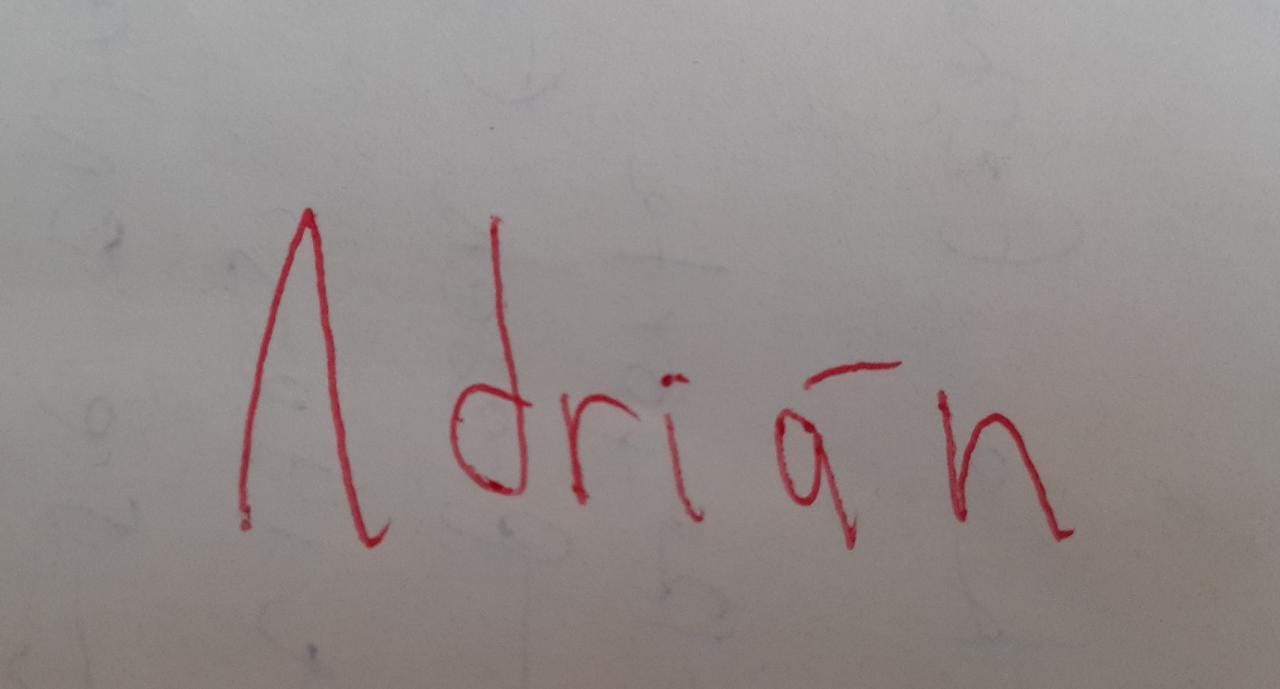 Adrián